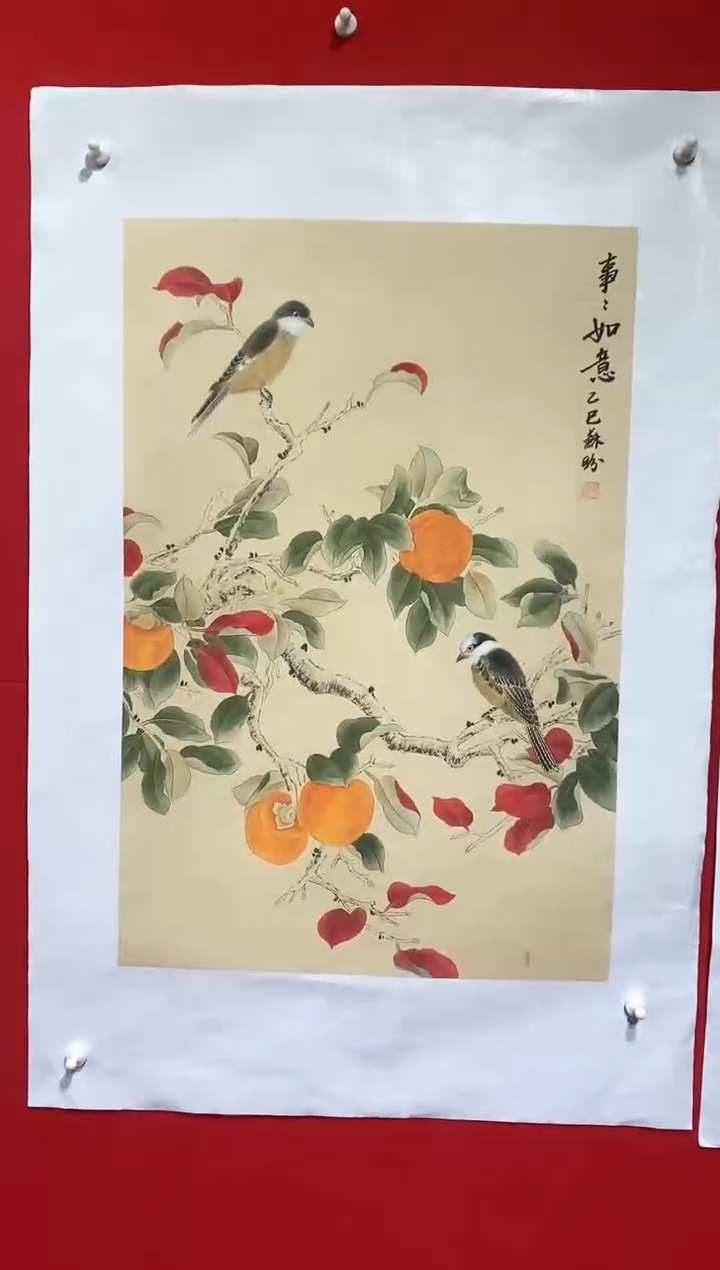 事〻如意乙巳蘇盼